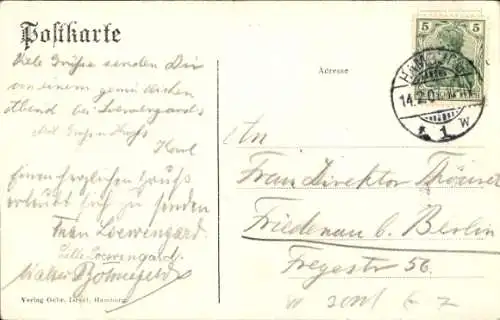 Postkarte
Viele Grüße senden Dir
von einem gemütlichen
Abend bei Loewengards
Mit
Karl
Einen herzlichen Gruß
erlaubt sich zu senden
Frau Loewengard.
Loewengard.
Walter
Verlag Gebr. Israel, Hamburg.
Adresse
5 5
HAMBURG
14.2.0
1 W
An
Frau Direktor
Friedenau b. Berlin
Fregestr 56.